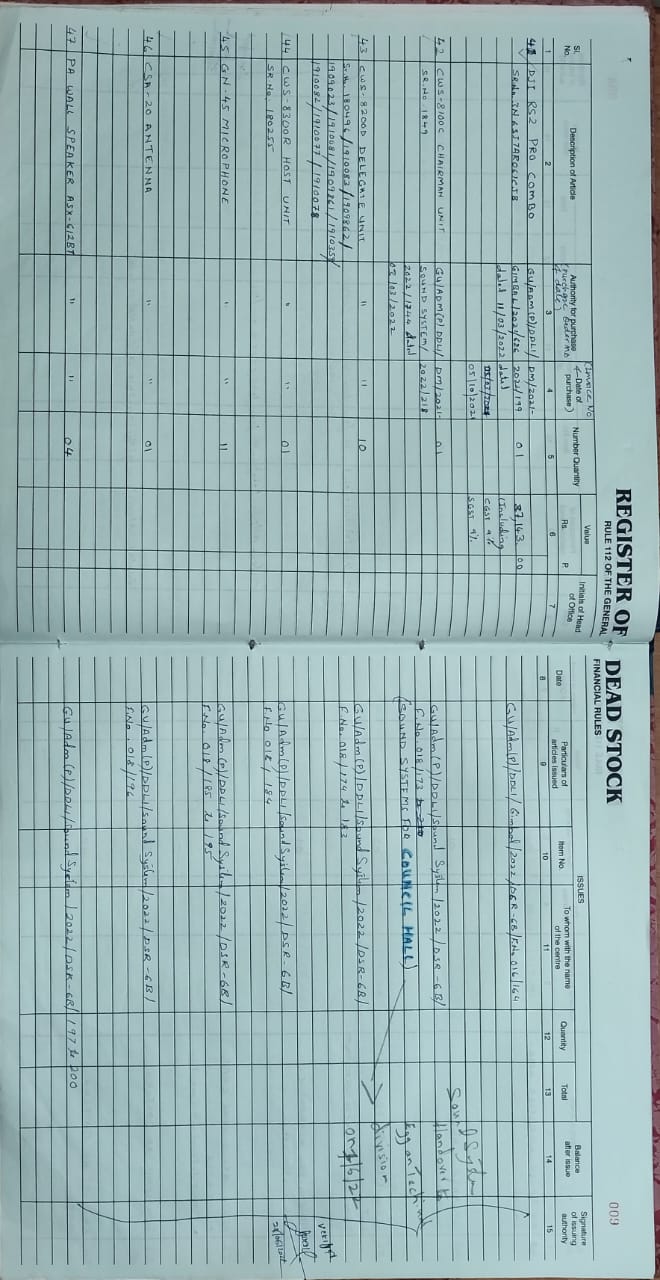 009
REGISTER OF DEAD STOCK
RULE 112 OF THE GENERAL FINANCIAL RULES
Sl. No.
Description of Article
Authority for purchase
(Purchase order no & date)
(Invoice No
& Date of purchase)
Number Quantity
Value
Rs.
P.
Initials of Head of Office
ISSUES
Date
Particulars of articles issued
Item No.
To whom with the name of the centre
Quantity
Total
Balance after issue
Signature of issuing authority
1 2 3 4 5 6 7 8 9 10 11 12 13 14 15
41 DJI RS2 PRO COMBO
GU/ADM(P)/DDLI/ DM/2021-
GIMBAL/2021/626 2022/199 01 87,143.00
dated 11/03/2022 dated (Including
05/10/2021 CGST 9%
SGST 9%
GU/Adm(P)/DDLI/Gimbal/2022/DSR-6B/F.No.016/164
42 CWS-8100C CHAIRMAN UNIT
SR.NO. 1849
GU/ADM(P)DDLI/ DM/2021- 01
SOUND SYSTEM/ 2022/218
2022/1744 dated
03/03/2022
GU/Adm(P)/DDLI/Sound System/2022/DSR-6B/
F.No. 018/173
(SOUND SYSTEMS FOR COUNCIL HALL)
43 CWS-8200D DELEGATE UNIT " " 10
Sr.No. 180496/1910083/1909862/
1909023/1910081/1909861/1910359/
1910082/1910077/1910078
GU/Adm(P)/DDLI/Sound System/2022/DSR-6B/
F.No. 018/174 to 183
44 CWS-8300R HOST UNIT " " 01
SR.No. 180255
GU/Adm(P)/DDLI/Sound System/2022/DSR-6B/
F.No 018/184
45 GN-45 MICROPHONE " " 11
GU/Adm(P)/DDLI/Sound System/2022/DSR-6B/
F.No. 018/185 to 195
46 CSA-20 ANTENNA " " 01
GU/Adm(P)/DDLI/Sound System/2022/DSR-6B/
F.No. 018/196
47 PA WALL SPEAKER ASX-612BT " " 04
GU/Adm(P)/DDLI/Sound System/2022/DSR-6B/197 to 200
Sound System
Handover to
division
Verified